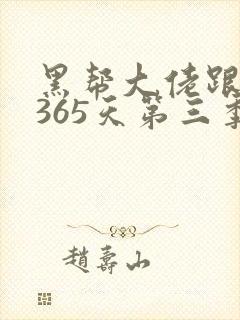 黑帮大佬跟
365天第三季
趙壽山